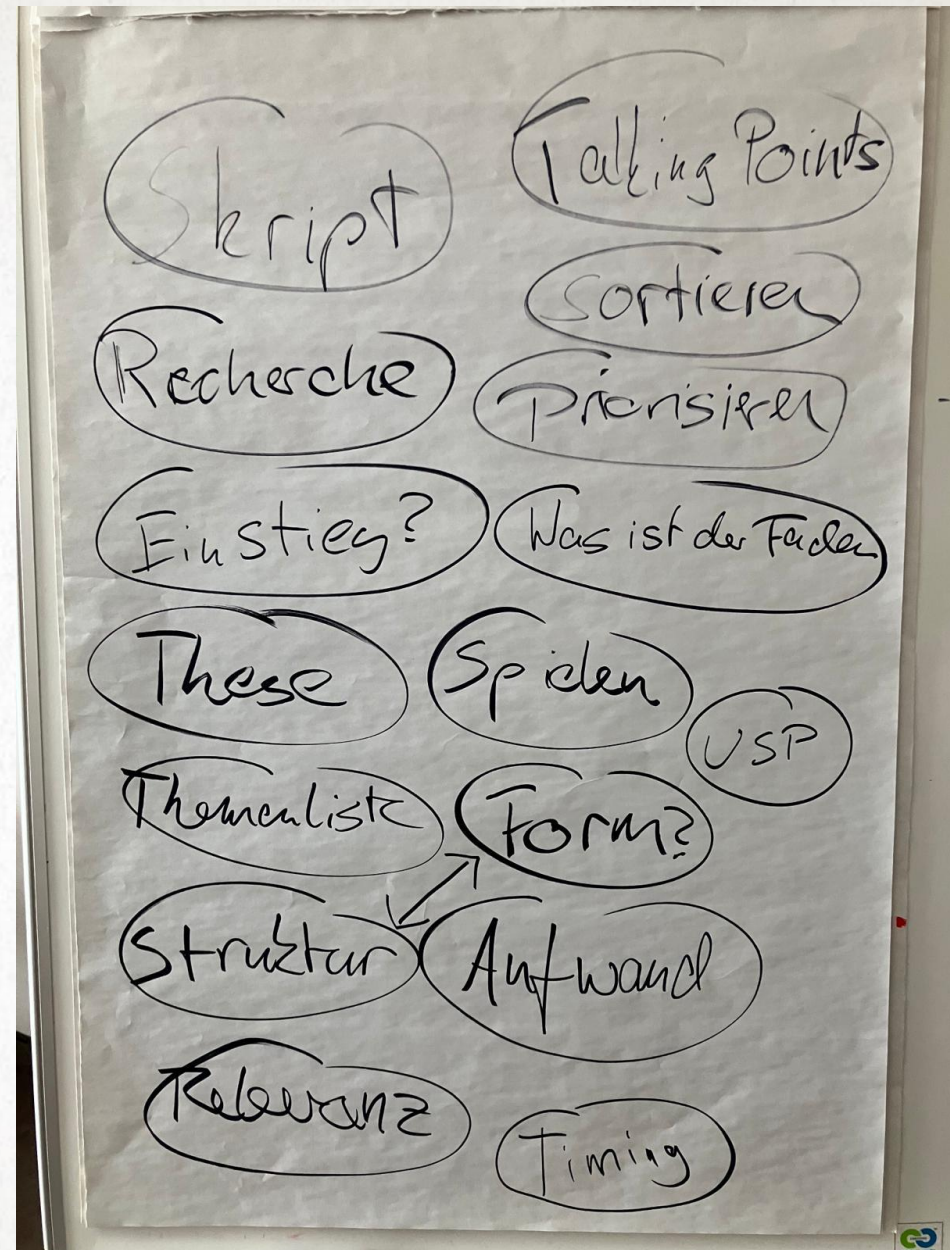 Skript
Talking Points
Sortieren
Recherche
Priorisieren
Einstieg?
Was ist der Faden
These
Spielen
USP
Themenliste
Form?
Struktur
Aufwand
Relevanz
Timing